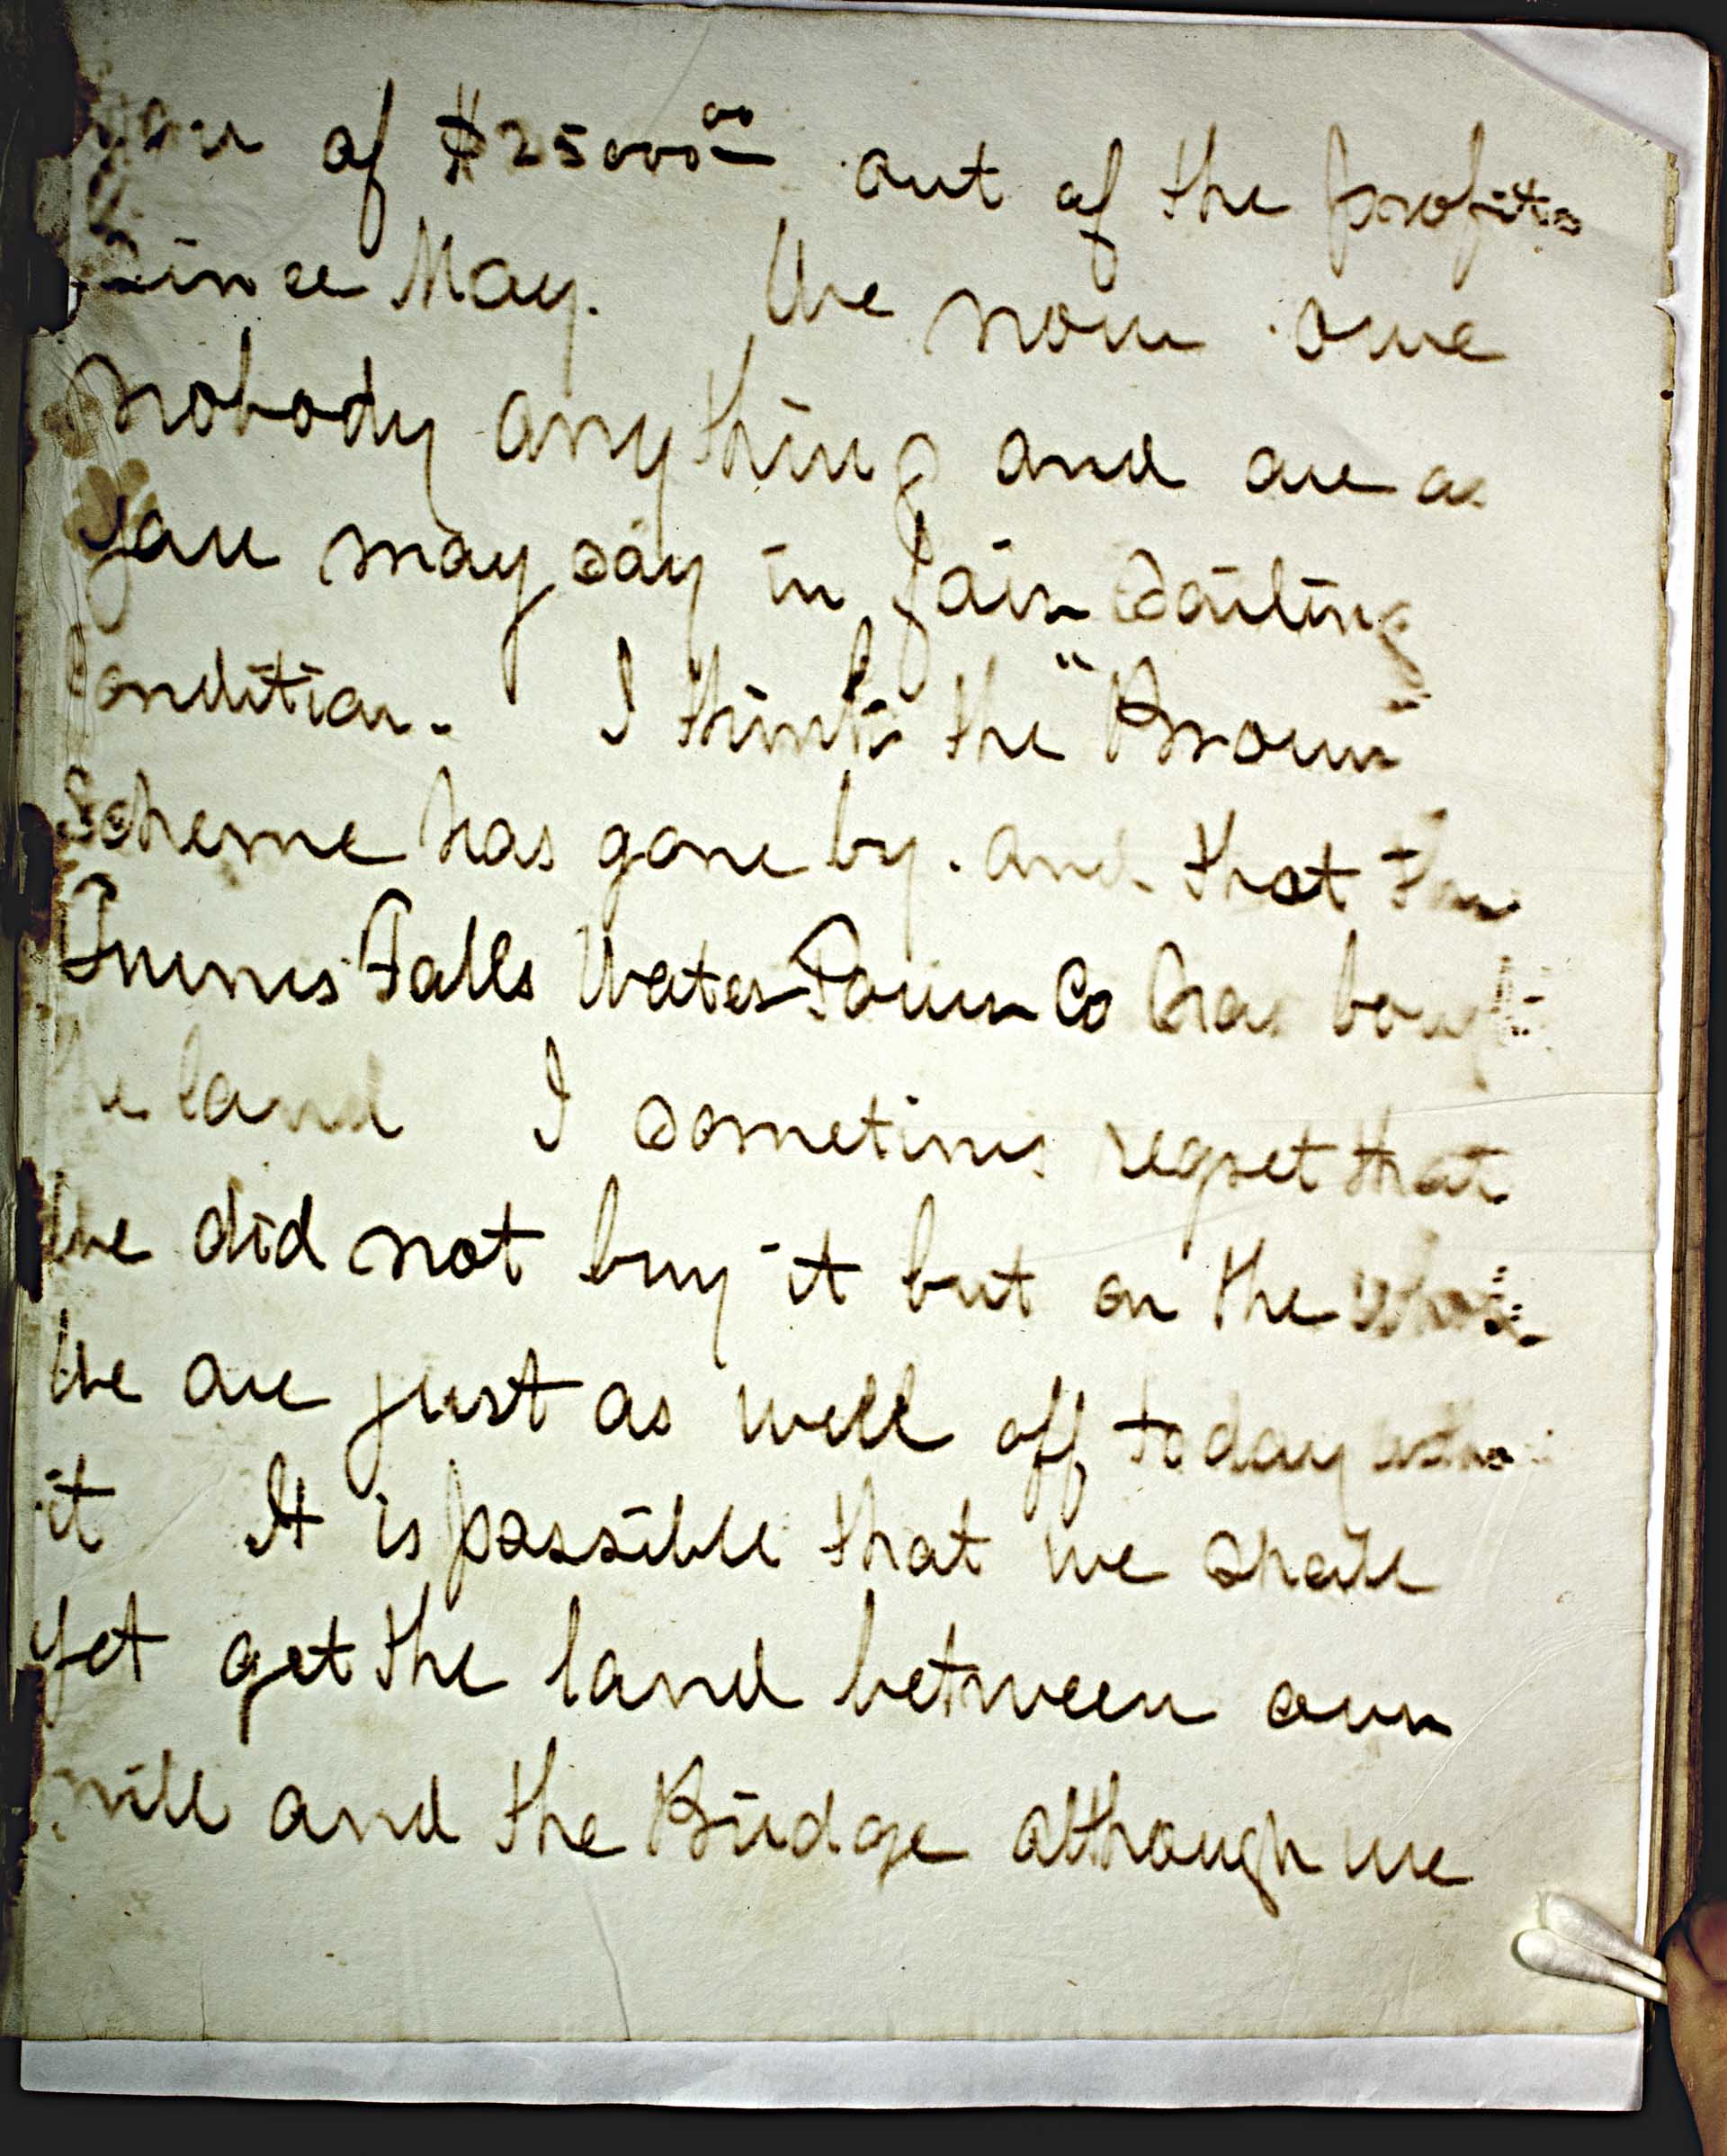 of $25000 00 out of the profits
Since May. We now owe
nobody anything and are as
you may say in fair sailing
condition. I think the "Brown"
Scheme has gone by. and that the
Falls Water Power Co has bought
the land I sometimes regret that
we did not buy it but on the whole
we are just as well off, today
it It is possible that we shall
yet get the land between our
mill and the Bridge although we